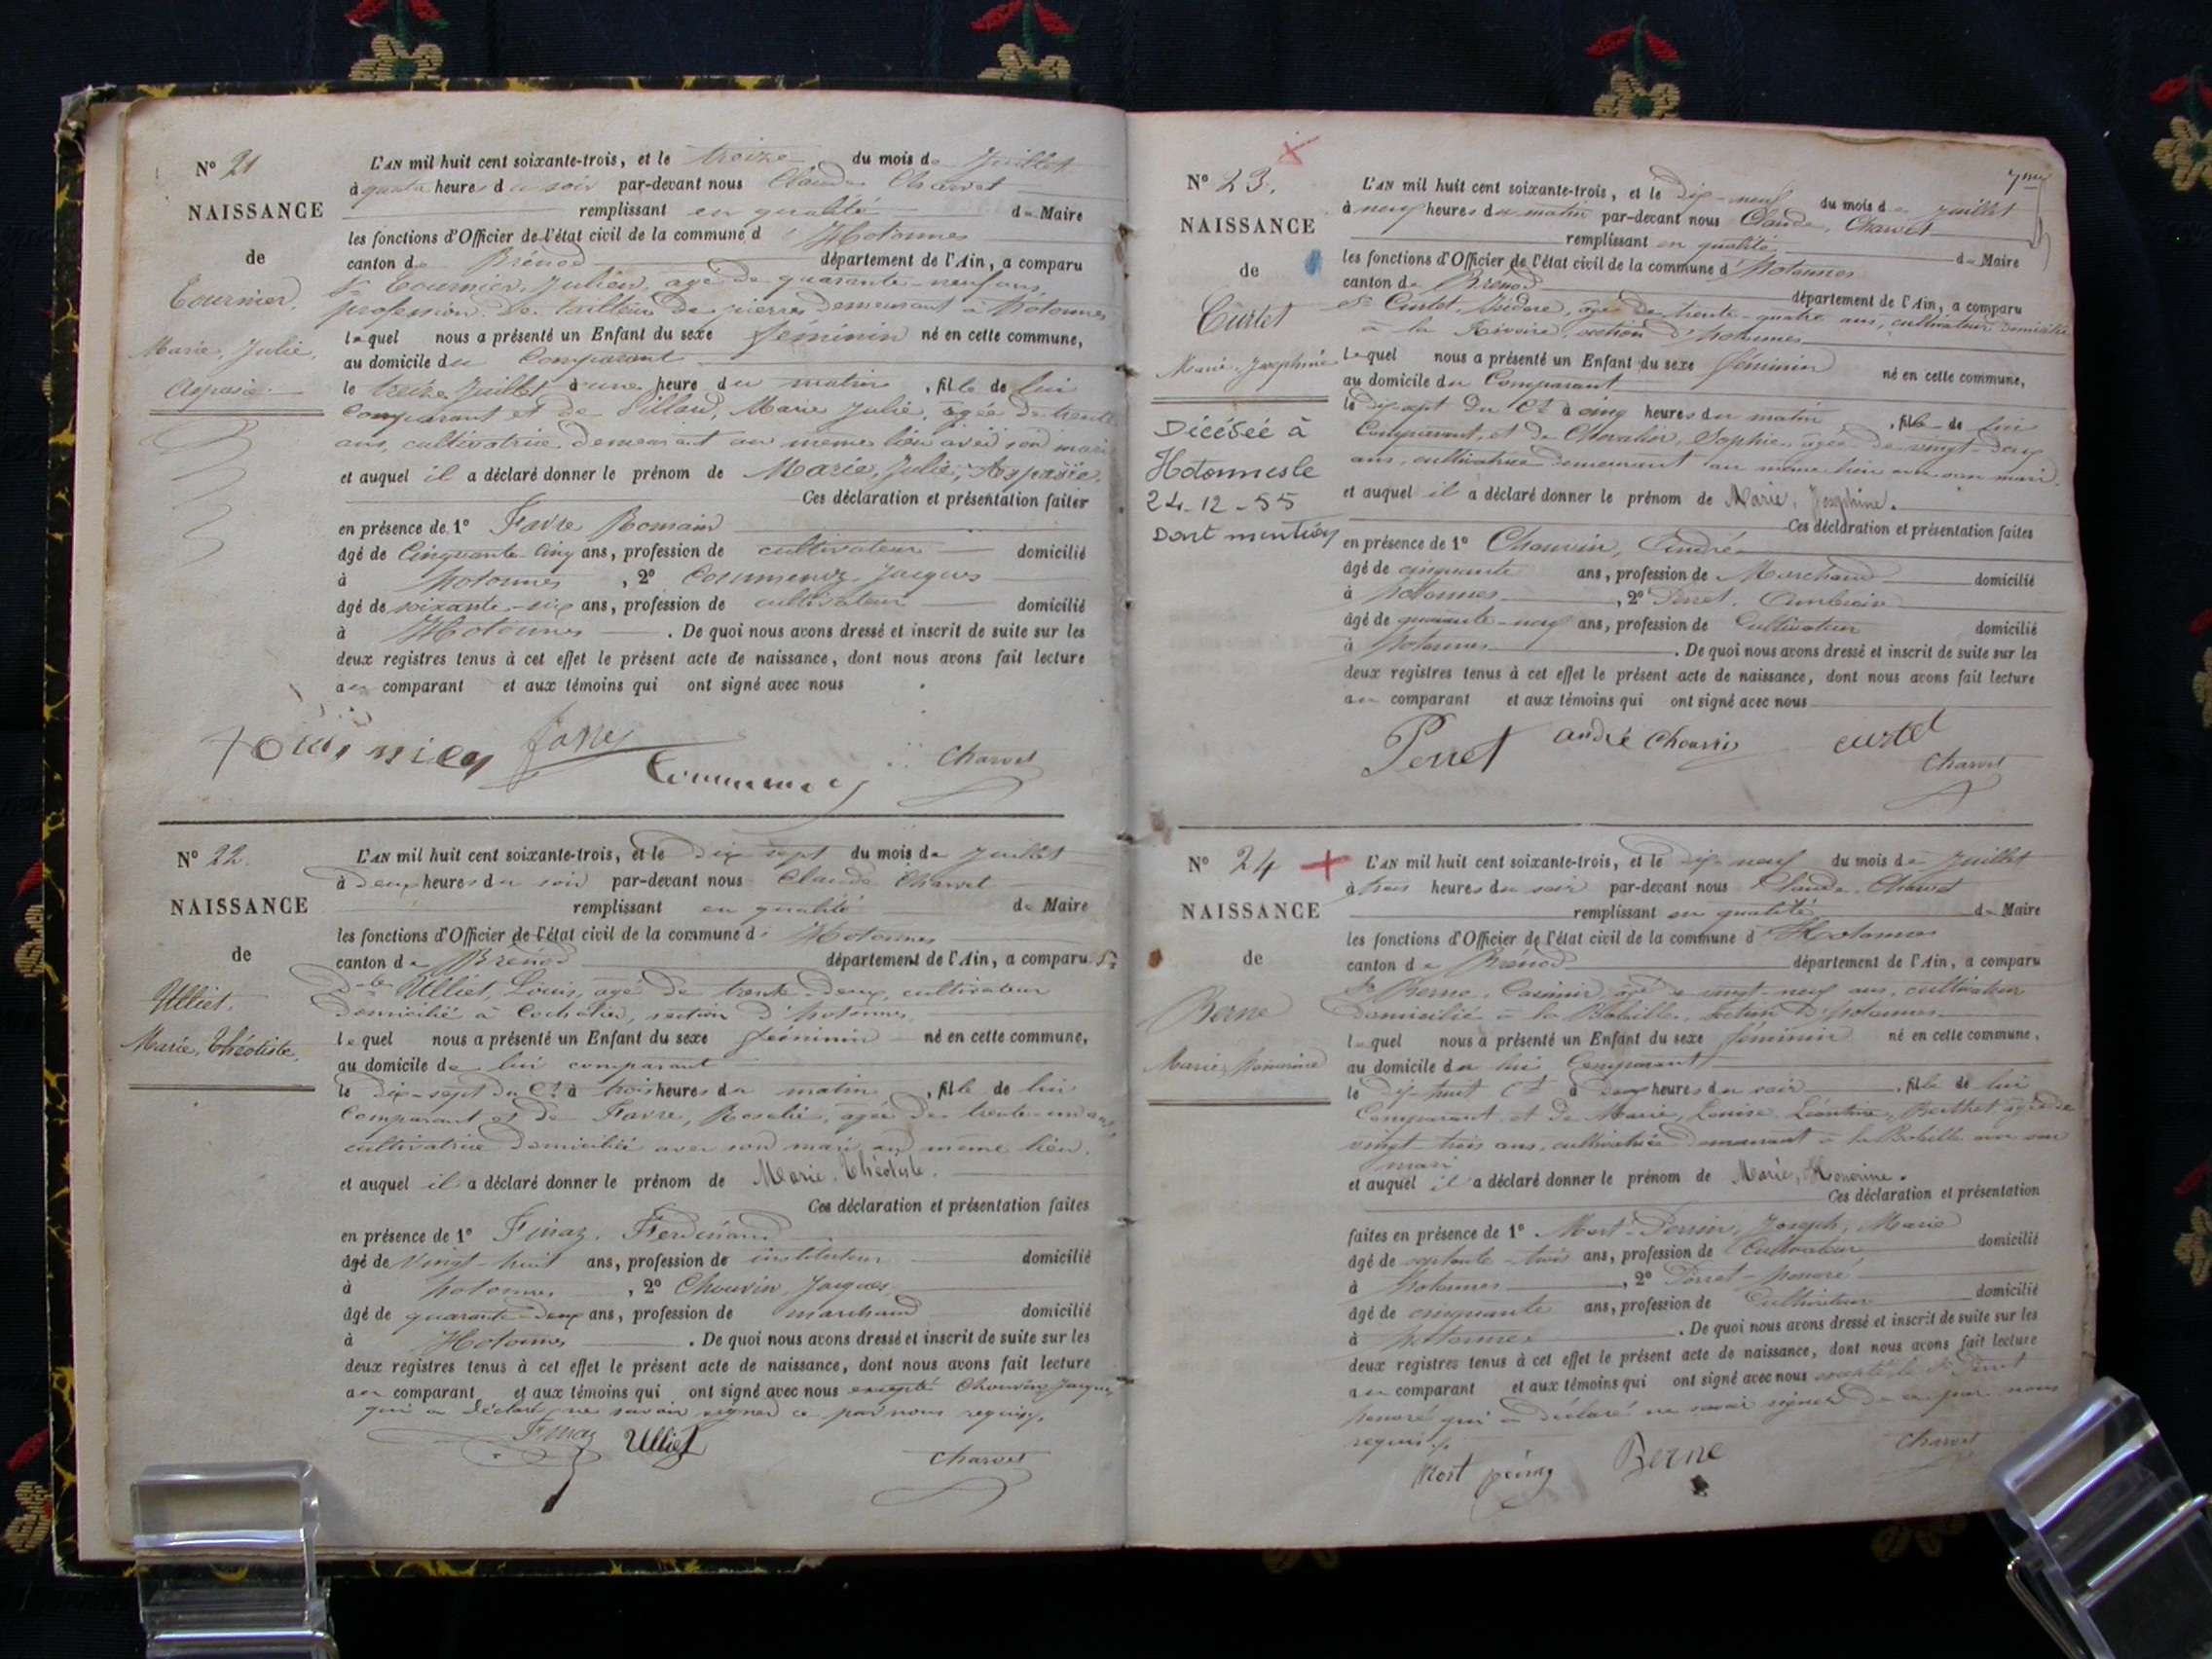 N° 21
NAISSANCE
de
Tournier
Marie, Julie,
Aspasie
L'AN mil huit cent soixante-trois, et le treize du mois de Juillet
à quatre heures du soir par-devant nous Claude Charvet
remplissant en qualité de Maire
les fonctions d'Officier de l'état civil de la commune d'Hotonnes
canton de Brénod département de l'Ain, a comparu
Sr Tournier, Julien, agé de quarante-neuf ans,
profession de tailleur de pierres demeurant à Hotonnes
lequel nous a présenté un Enfant du sexe féminin né en cette commune,
au domicile du Comparant
le treize Juillet à une heure du matin, fille de lui
Comparant et de Billard, Marie Julie, agée de trente
ans, cultivatrice demeurant au même lieu avec son mari
et auquel il a déclaré donner le prénom de Marie, Julie, Aspasie.
Ces déclaration et présentation faites
en présence de 1° Favre Romain
âgé de Cinquante cinq ans, profession de cultivateur domicilié
à Hotonnes, 2° Jacques
âgé de soixante-six ans, profession de cultivateur domicilié
à Hotonnes. De quoi nous avons dressé et inscrit de suite sur les
deux registres tenus à cet effet le présent acte de naissance, dont nous avons fait lecture
au comparant et aux témoins qui ont signé avec nous
Charvet
N° 22
NAISSANCE
de
Ulliet.
Marie, Théotiste
L'AN mil huit cent soixante-trois, et le dix sept du mois de Juillet
à deux heures du soir par-devant nous Claude Charvet
remplissant en qualité de Maire
les fonctions d'Officier de l'état civil de la commune d'Hotonnes
canton de Brénod département de l'Ain, a comparu Sr
Ulliet, Louis, agé de trente-deux, cultivateur
domicilié à section d'Hotonnes
lequel nous a présenté un Enfant du sexe féminin né en cette commune,
au domicile de lui comparant
le dix-sept du Ct à trois heures du matin, fille de lui
Comparant et de Favre, Rosalie, agée de trente-un ans,
cultivatrice domiciliée avec son mari au même lieu.
et auquel il a déclaré donner le prénom de Marie. Théotiste.
Ces déclaration et présentation faites
en présence de 1° Finaz, Ferdinand
âgé de vingt-huit ans, profession de instituteur domicilié
à hotonnes, 2° Chouvin, Jacques
âgé de quarante-deux ans, profession de marchand domicilié
à Hotonnes. De quoi nous avons dressé et inscrit de suite sur les
deux registres tenus à cet effet le présent acte de naissance, dont nous avons fait lecture
au comparant et aux témoins qui ont signé avec nous excepté Chouvin Jacques
qui a déclaré ne savoir signer ce par nous requis.
Finaz Ulliet Charvet
7me
N° 23.
NAISSANCE
de
Curtet
Marie-Josephine
Décédée à
Hotonnes le
24-12-55
Dont mention
L'AN mil huit cent soixante-trois, et le dix-neuf du mois de juillet
à neuf heures du matin par-devant nous Claude, Charvet
remplissant en qualité de Maire
les fonctions d'Officier de l'état civil de la commune d'hotonnes
canton de Brénod département de l'Ain, a comparu
Sr Curtet, Isidore, agé de trente-quatre ans, cultivateur domicilié
à la Rivoire, section d'hotonnes
lequel nous a présenté un Enfant du sexe féminin né en cette commune,
au domicile du Comparant
le dix-sept du Ct à cinq heures du matin, fille de lui
Comparant, et de Chevalier, Sophie, agée de vingt-deux
ans, cultivatrice demeurant au même lieu avec son mari.
et auquel il a déclaré donner le prénom de Marie, Josephine.
Ces déclaration et présentation faites
en présence de 1° Chouvin, André
âgé de cinquante ans, profession de Marchand domicilié
à hotonnes, 2° Perret,
âgé de quarante-neuf ans, profession de Cultivateur domicilié
à hotonnes. De quoi nous avons dressé et inscrit de suite sur les
deux registres tenus à cet effet le présent acte de naissance, dont nous avons fait lecture
au comparant et aux témoins qui ont signé avec nous
Perret andré chouvin curtet
Charvet
N° 24
NAISSANCE
de
Berne
Marie, honorine
L'AN mil huit cent soixante-trois, et le dix-neuf du mois de Juillet
à trois heures du soir par-devant nous Claude Charvet
remplissant en qualité de Maire
les fonctions d'Officier de l'état civil de la commune d'Hotonnes
canton de Brénod département de l'Ain, a comparu
Sr Berne, Casimir agé de vingt-neuf ans, cultivateur
domicilié à la section d'hotonnes
lequel nous a présenté un Enfant du sexe féminin né en cette commune,
au domicile de lui Comparant
le dix-huit Ct à deux heures du soir, fille de lui
Comparant et de Marie, Louise, Léontine, Berthet agée de
vingt-trois ans, cultivatrice demeurant à la avec son
mari
et auquel il a déclaré donner le prénom de Marie, Honorine.
Ces déclaration et présentation
faites en présence de 1° Mort-Perrin, Joseph, Marie
âgé de septante-trois ans, profession de Cultivateur domicilié
à Hotonnes, 2° Perret-honoré
âgé de cinquante ans, profession de Cultivateur domicilié
à hotonnes. De quoi nous avons dressé et inscrit de suite sur les
deux registres tenus à cet effet le présent acte de naissance, dont nous avons fait lecture
au comparant et aux témoins qui ont signé avec nous excepté le Sr Perret
honoré qui a déclaré ne savoir signer de ce par nous
requis.
Mort Berne Charvet